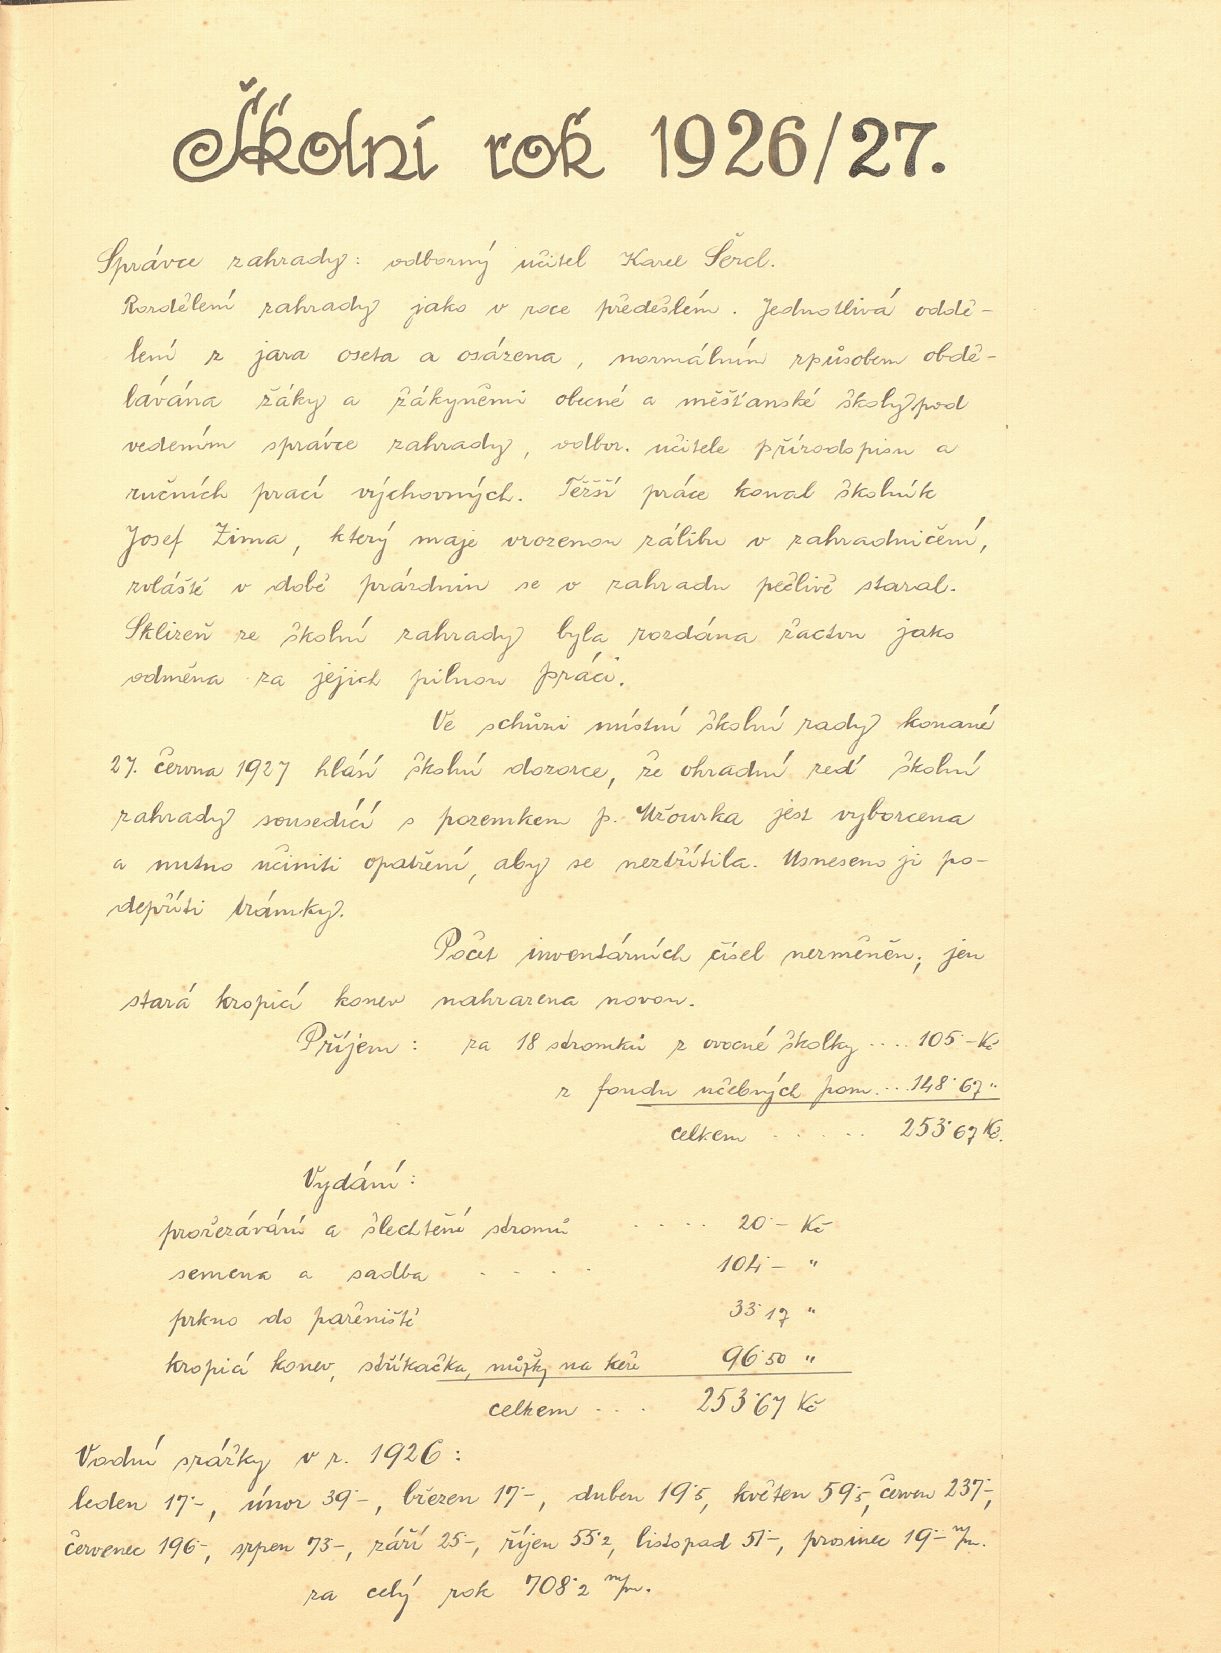 Školní rok 1926/27.
Správce zahrady: odborný učitel Karel Šercl.
Rozdělení zahrady jako v roce předešlém. Jednotlivá oddě-
lení z jara oseta a osázena, normálním způsobem obdě-
lávána žáky a žákyněmi obecné a měšťanské školy pod
vedením správce zahrady, odbor. učitele přírodopisu a
ručních prací výchovných. Těžší práce konal školník
Josef Zima, který maje vrozenou zálibu v zahradničení,
zvláště v době prázdnin se o zahradu pečlivě staral.
Sklizeň ze školní zahrady byla rozdána žactvu jako
odměna za jejich pilnou práci.
Ve schůzi místní školní rady konané
27. června 1927 hlásí školní dozorce, že ohradní zeď školní
zahrady sousedící s pozemkem p. Mžourka jest vyborcena
a nutno učiniti opatření, aby se nezřítila. Usneseno ji po-
depříti trámky.
Počet inventárních čísel nezměněn; jen
stará kropicí konev nahrazena novou.
Příjem: za 18 stromků z ovocné školky .... 105·– Kč
z fondu učebných pom. ... 148·67 "
celkem ..... 253·67 Kč.
Vydání:
prořezávání a šlechtění stromů .... 20·– Kč
semena a sadba .... 104·– "
prkno do pařeniště 33·17 "
kropicí konev, stříkačka, nůžky na keře 96·50 "
celkem ... 253·67 Kč
Vodní srážky v r. 1926:
leden 17·–, únor 39·–, březen 17·–, duben 19·5, květen 59·5, červen 237·–,
červenec 196·–, srpen 73·–, září 25·–, říjen 55·2, listopad 51·–, prosinec 19·– m/m.
za celý rok 708·2 m/m.